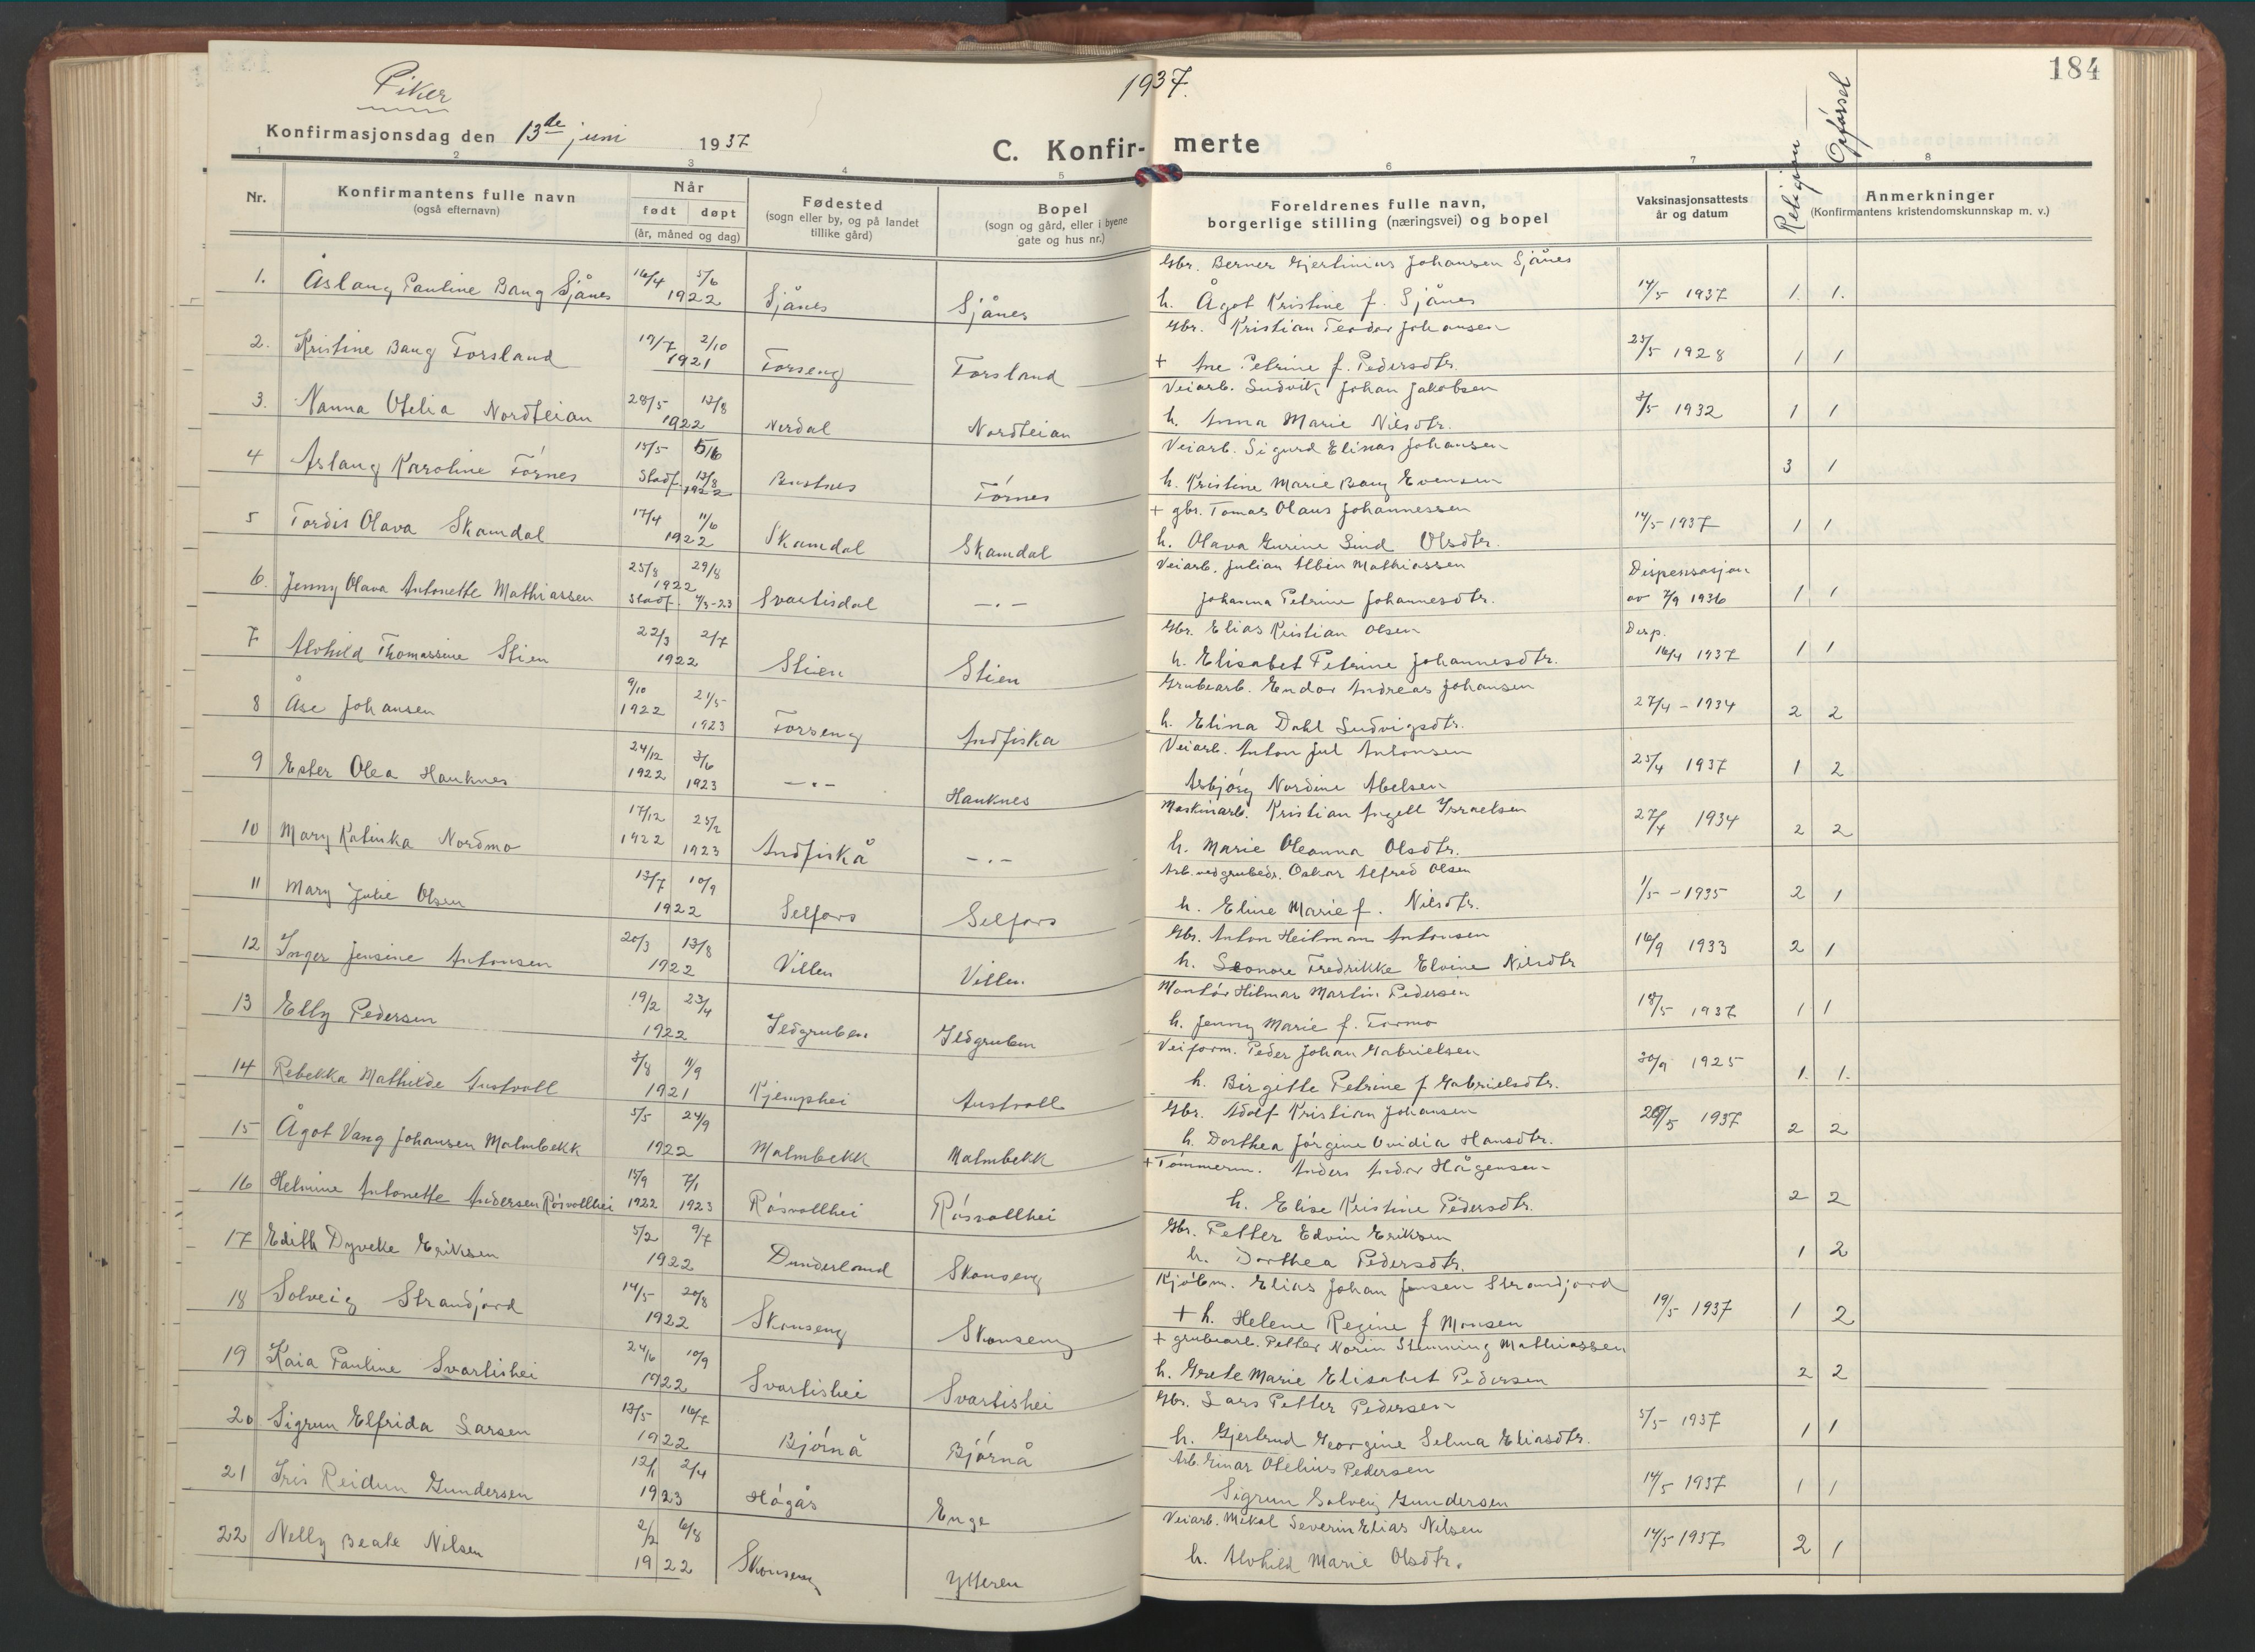 184
Piker
1937.
Konfirmasjonsdag den 13de juni 1937
C. Konfir- merte
Religion
Opførsel
1 2 3 4 5 6 7 8
Nr.
Konfirmantens fulle navn
(også efternavn)
Når
født døpt
(år, måned og dag)
Fødested
(sogn eller by, og på landet
tillike gård)
Bopel
(sogn og gård, eller i byene
gate og hus nr.)
Foreldrenes fulle navn,
borgerlige stilling (næringsvei) og bopel
Vaksinasjonsattests
år og datum
Anmerkninger
(Konfirmantens kristendomskunnskap m. v.)
Gbr. Berner Gjertinius Johansen Sjånes
1. Åslaug Pauline Bang Sjånes 16/4 5/6 1922 Sjånes Sjånes h. Ågot Kristine f. Sjånes 14/5 1937 1. 1.
Gbr. Kristian Teodor Johansen
2. Kristine Bang Forsland 19/7 2/10 1921 Forseng Forsland + Ane Petrine f. Pedersdtr. 25/5 1928 1 1
Veiarb. Ludvik Johan Jakobsen
3. Nanna Otelia Nordteian 28/5 13/8 1922 Nerdal Nordteian h. Anna Marie Nilsdtr. 3/5 1932 1 1
Veiarb. Sigurd Elisas Johansen
4 Aslaug Karoline Tørnes 15/5 5/6 Stadf. 13/8 1922 Bustnes Tørnes h. Kristine Marie Bang Evensen 3 1
+ gbr. Tomas Olaus Johannessen
5 Tordis Olava Skamdal 17/4 11/6 1922 Skamdal Skamdal h. Olava Gurine Lind Olsdtr. 14/5 1937 1 1
Veiarb. Julian Albin Mathiassen Dispensasjon
6. Jenny Olava Antonette Mathiassen 25/8 29/8 1922 Stadf. 4/3-23 Svartisdal —.— Johanna Petrine Johannesdtr. av 7/9 1936 1 1
Gbr. Elias Kristian Olsen Disp.
7 Alvhild Thomassine Stien 22/3 2/7 1922 Stien Stien h. Elisabet Petrine Johannesdtr. 16/4 1937 1 1
Grubearb. Endor Andreas Johansen
8 Åse Johansen 9/10 1922 21/5 1923 Forseng Andfiskå h. Elina Dahl Ludvigsdtr. 27/4 - 1934 2 2
Veiarb. Anton Jul Antonsen
9 Ester Olea Hauknes 24/12 1922 3/6 1923 —.— Hauknes Asbjørg Nordine Abelsen 25/4 1937 1 2
Maskinarb. Kristian Angell Israelsen
10 Mary Katinka Nordmo 17/12 1922 25/2 1923 Andfiskå —.— h. Marie Oleanna Olsdtr. 27/4 1934 2 2
Arb. ved grubedr. Oskar Alfred Olsen
11 Mary Julie Olsen 13/7 10/9 1922 Selfors Selfors h. Eline Marie f. Nilsdtr. 1/5 - 1935 2 1
Gbr. Anton Heitman Antonsen
12 Inger Jensine Antonsen 20/3 13/8 1922 Villen Villen. h. Leonore Fredrikke Elvine Nilsdtr 16/9 1933 2 1
Montør Hilmar Martin Pedersen
13 Elly Pedersen 19/2 23/4 1922 Ildgruben Ildgruben h. Jenny Marie f. Tormo 18/5 1937 1 1
Veiform. Peder Johan Gabrielsen
14 Rebekka Mathilde Austvoll 3/8 11/9 1921 Kjemphei Austvoll h. Birgitte Petrine f Gabrielsdtr. 30/9 1925 1. 1.
Gbr. Adolf Kristian Johansen
15 Ågot Vang Johansen Malmbekk 5/5 24/9 1922 Malmbekk Malmbekk h. Dorthea Jørgine Ovidia Hansdtr. 20/5 1937 2 2
+ Tømmerm. Anders Andor Hågensen
16 Helmine Antonette Andersen Røsvollhei 15/9 1922 7/1 1923 Røsvollhei Røsvollhei h. Elise Kristine Pedersdtr. 2 2
Gbr. Petter Edvin Eriksen
17 Edith Dyveke Eriksen 5/2 9/7 1922 Dunderland Skonseng h. Dorthea Pedersdtr. 1 2
Kjøbm. Elias Johan Jensen Strandjord
18 Solveig Strandjord 14/5 20/8 1922 Skonseng Skonseng + h. Helene Regine f Monsen 19/5 1937 1 2
+ grubearb. Petter Norin Stenning Mathiassen
19 Kaia Pauline Svartishei 24/6 10/9 1922 Svartishei Svartishei h. Grete Marie Elisabet Pedersen 2 2
Gbr. Lars Petter Pedersen
20 Sigrun Elfrida Larsen 13/5 16/7 1922 Bjørnå Bjørnå h. Gjertrud Georgine Selma Eliasdtr. 5/5 1937 1 1
Arb. Einar Otelius Pedersen
21 Iris Reidun Gundersen 12/1 2/4 1923 Høgås Enge Sigrun Solveig Gundersen 14/5 1937 1 1
Veiarb. Mikal Severin Elias Nilsen
22 Nelly Beate Nilsen 2/2 6/8 1922 Skonseng Ytteren h. Alvhild Marie Olsdtr. 14/5 1937 2 1